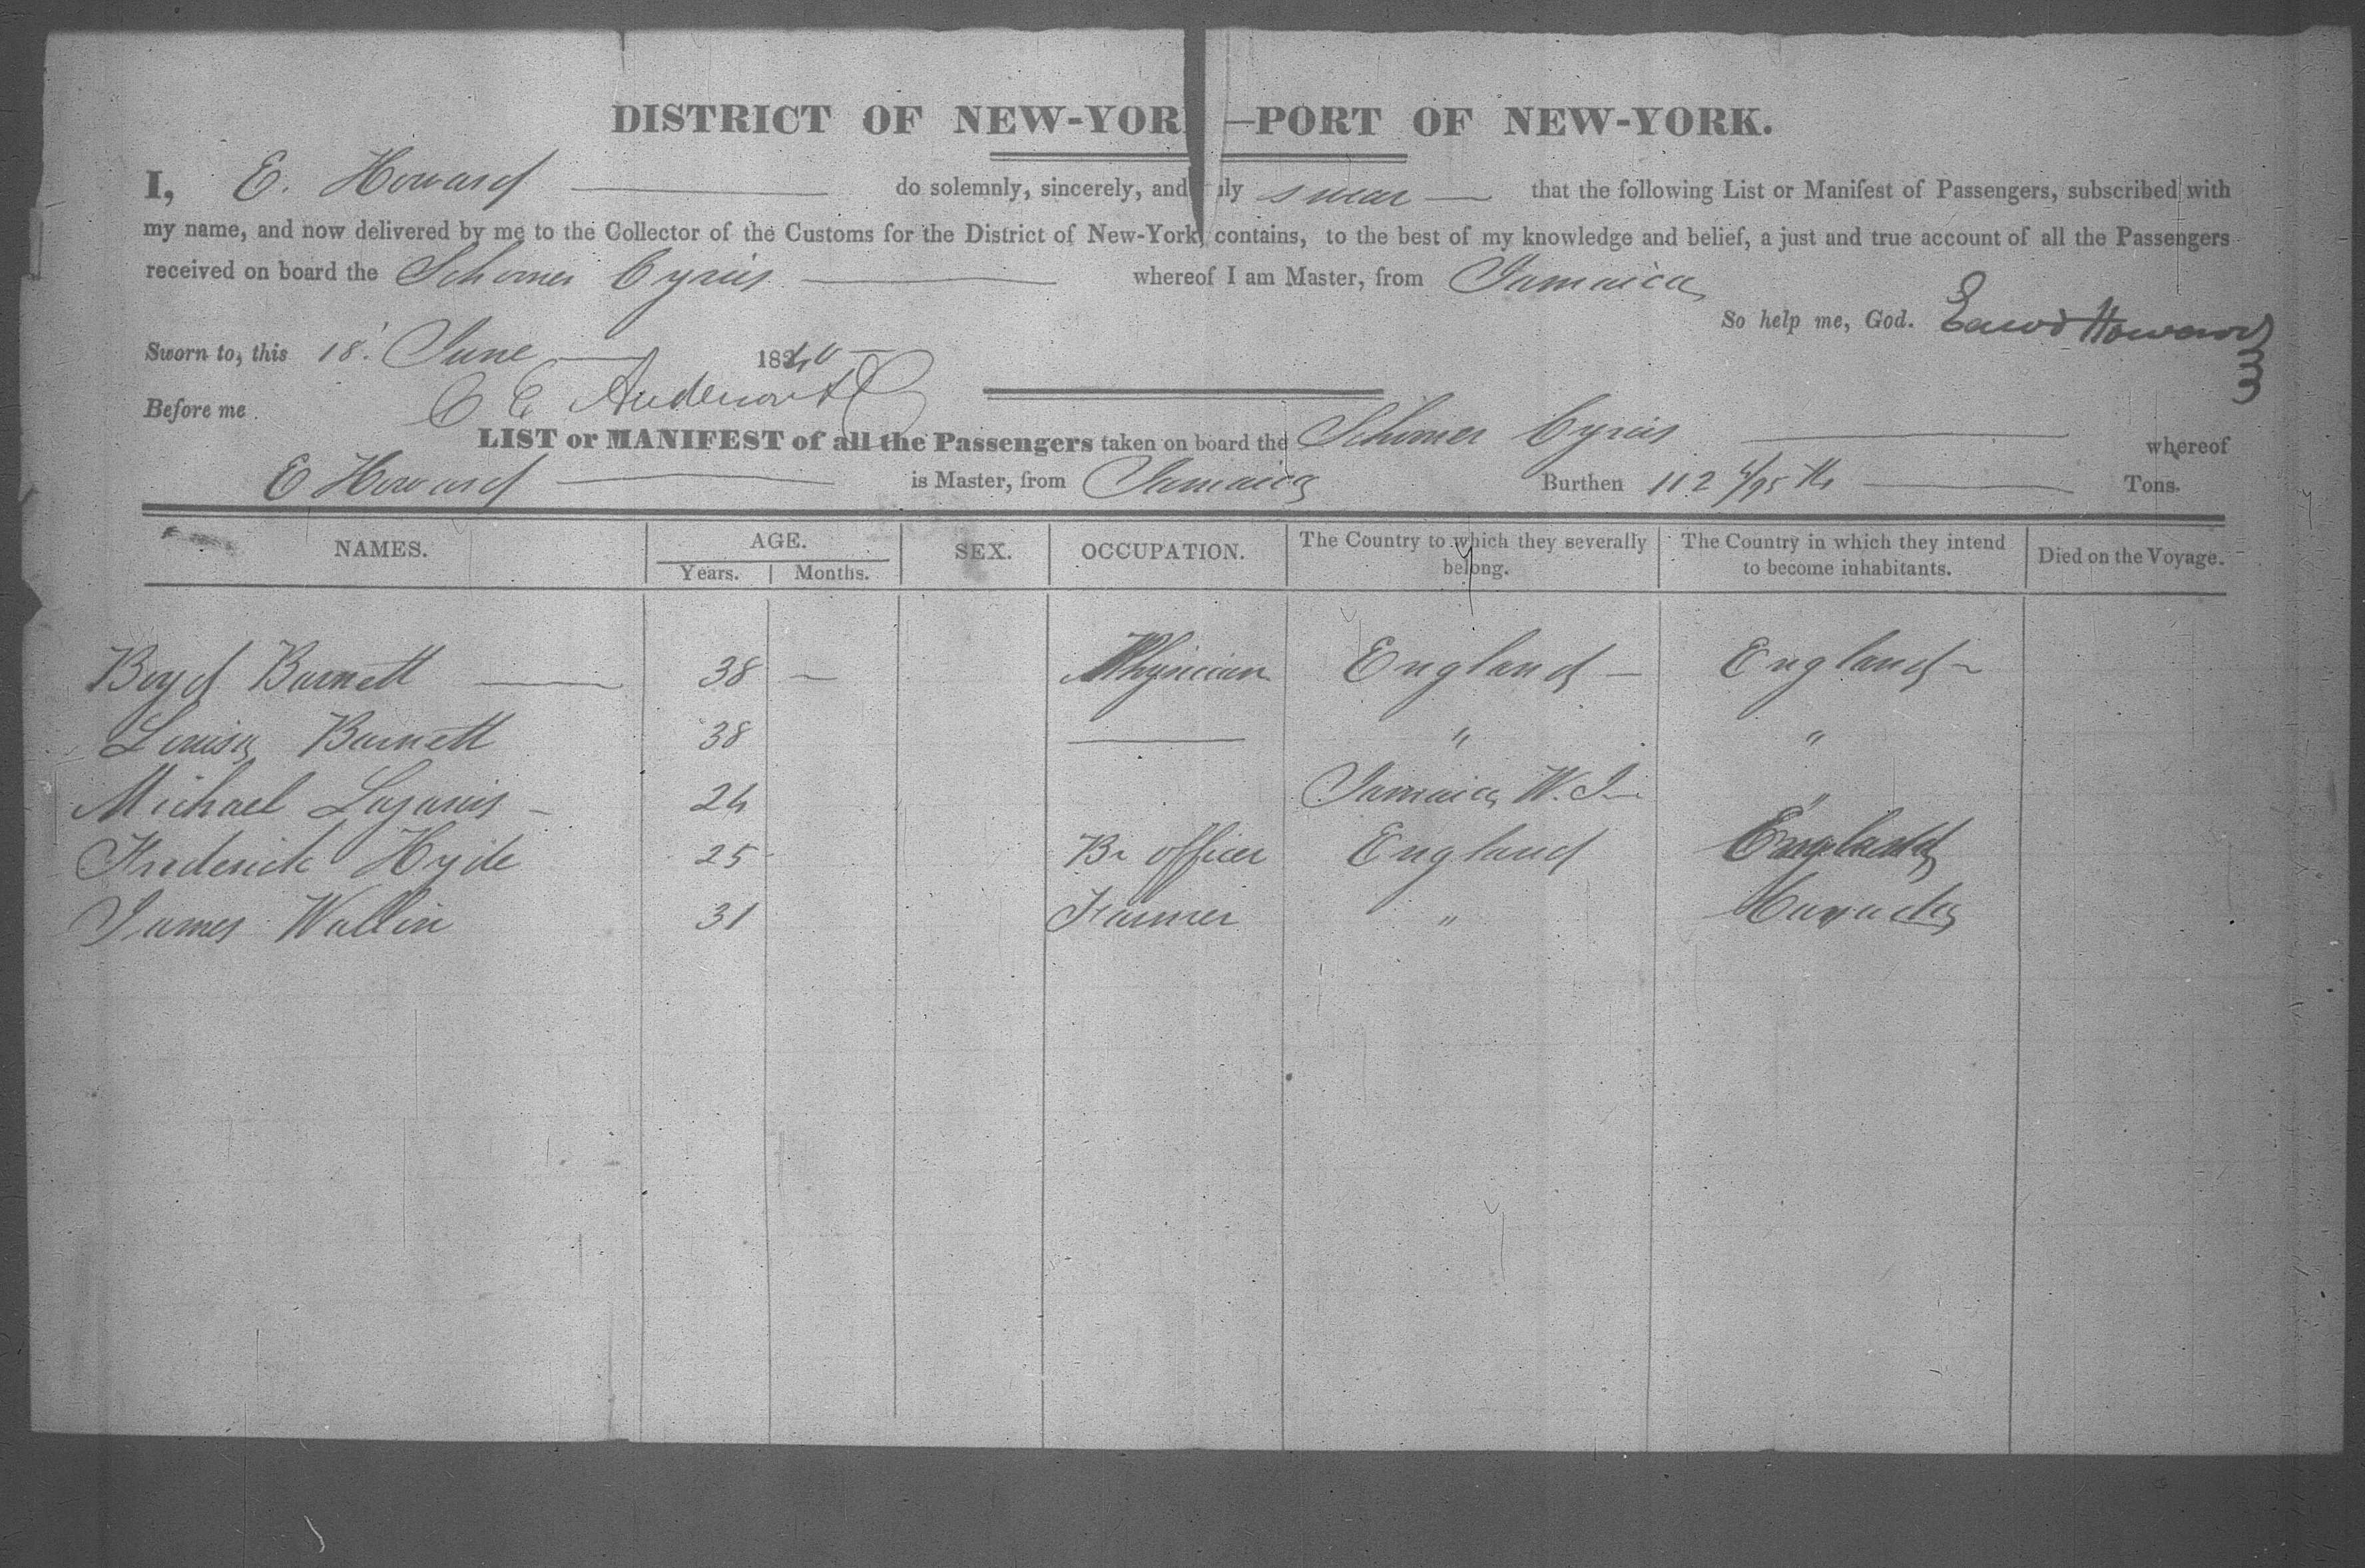 DISTRICT OF NEW-YOR —PORT OF NEW-YORK.
I, E. Howard do solemnly, sincerely, and uly swear that the following List or Manifest of Passengers, subscribed with
my name, and now delivered by me to the Collector of the Customs for the District of New-York, contains, to the best of my knowledge and belief, a just and true account of all the Passengers
received on board the Schooner Cyrus whereof I am Master, from Jamaica
So help me, God. Edwd Howard
Sworn to, this 18. June 1840
Before me
LIST or MANIFEST of all the Passengers taken on board the Schooner Cyrus whereof
E Howard is Master, from Jamaica Burthen 112 4/95 ths Tons.
NAMES. AGE. SEX. OCCUPATION. The Country to which they severally belong. The Country in which they intend to become inhabitants. Died on the Voyage.
Years. Months.
Boyd Burnett 38 — Physician England England
Louisa Burnett 38 — " "
Michael Lazarus 24 Jamaica W. I. "
Frederick Hyde 25 Br officer England England
James Wallin 31 Farmer " Canada